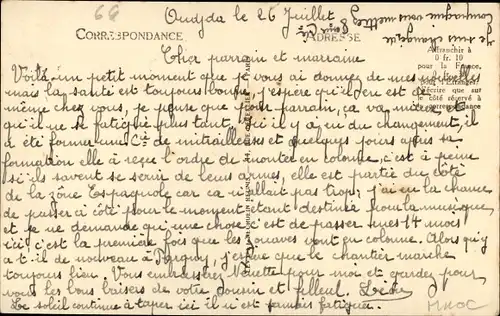 66
Oudjda le 26 Juillet
CORRESPONDANCE
ADRESSE
Je suis changé de
Compagnie vous mettrez 8eme Cie
Affranchir à
0 fr. 10
pour la France,
Cher parrain et marraine
Voilà un petit moment que je vous ai donner de mes nouvelles
mais la santé est toujours bonne, j'espère qu'il en est de
même chez vous, je pense que pour parrain, ça va mieux et
qu'il ne se fatigue plus tant. Ici il y a eu du changement, il
a été former une Cie de mitrailleuses et quelques jours après sa
formation elle à reçue l'ordre de monter en colonne, c'est à peine
si ils savent se servir de leurs armes, elle est partie du côté
de la zône Espagnole car ca n'allait pas trop; j'ai eu la chance
de passer à côté pour le moment étant destiné pour la musique
et je ne demande qu'une chose c'est de passer mes 14 mois
ici c'est la première fois que les zouaves vont en colonne. Alors qu'y
a-t-il de nouveau à, j'espère que le chantier marche
toujours bien. Vous embrasserez Ninette pour moi et gardez pour
vous les bons baisers de votre cousin et filleul.
Le soleil continue à taper ici il n'est jamais fatiguer.
MAOC